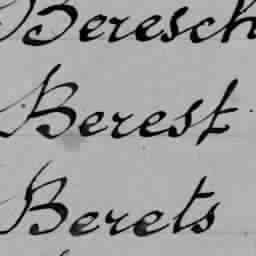 Beresch
Berest
Berets